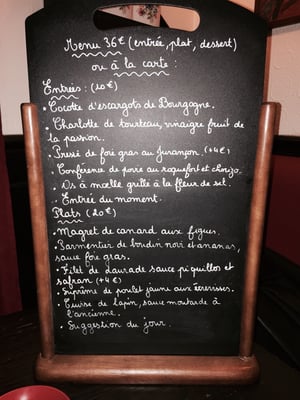 Menu 36€ (entrée, plat, dessert)
ou à la carte :
Entrées : (20€)
• Cocotte d'escargots de Bourgogne.
• Charlotte de tourteau, vinaigre fruit de
la passion.
• Pressé de foie gras au Jurançon. (+4€)
• Conférence de poire au roquefort et chorizo.
• Os à moelle grillé à la fleur de sel.
• Entrée du moment.
Plats (20€)
• Magret de canard aux figues.
• Parmentier de boudin noir et ananas,
sauce foie gras.
• Filet de daurade sauce piquillos et
safran (+4€)
• Suprême de poulet jaune aux écrevisses.
• Cuisse de lapin, sauce moutarde à
l'ancienne.
• Suggestion du jour.